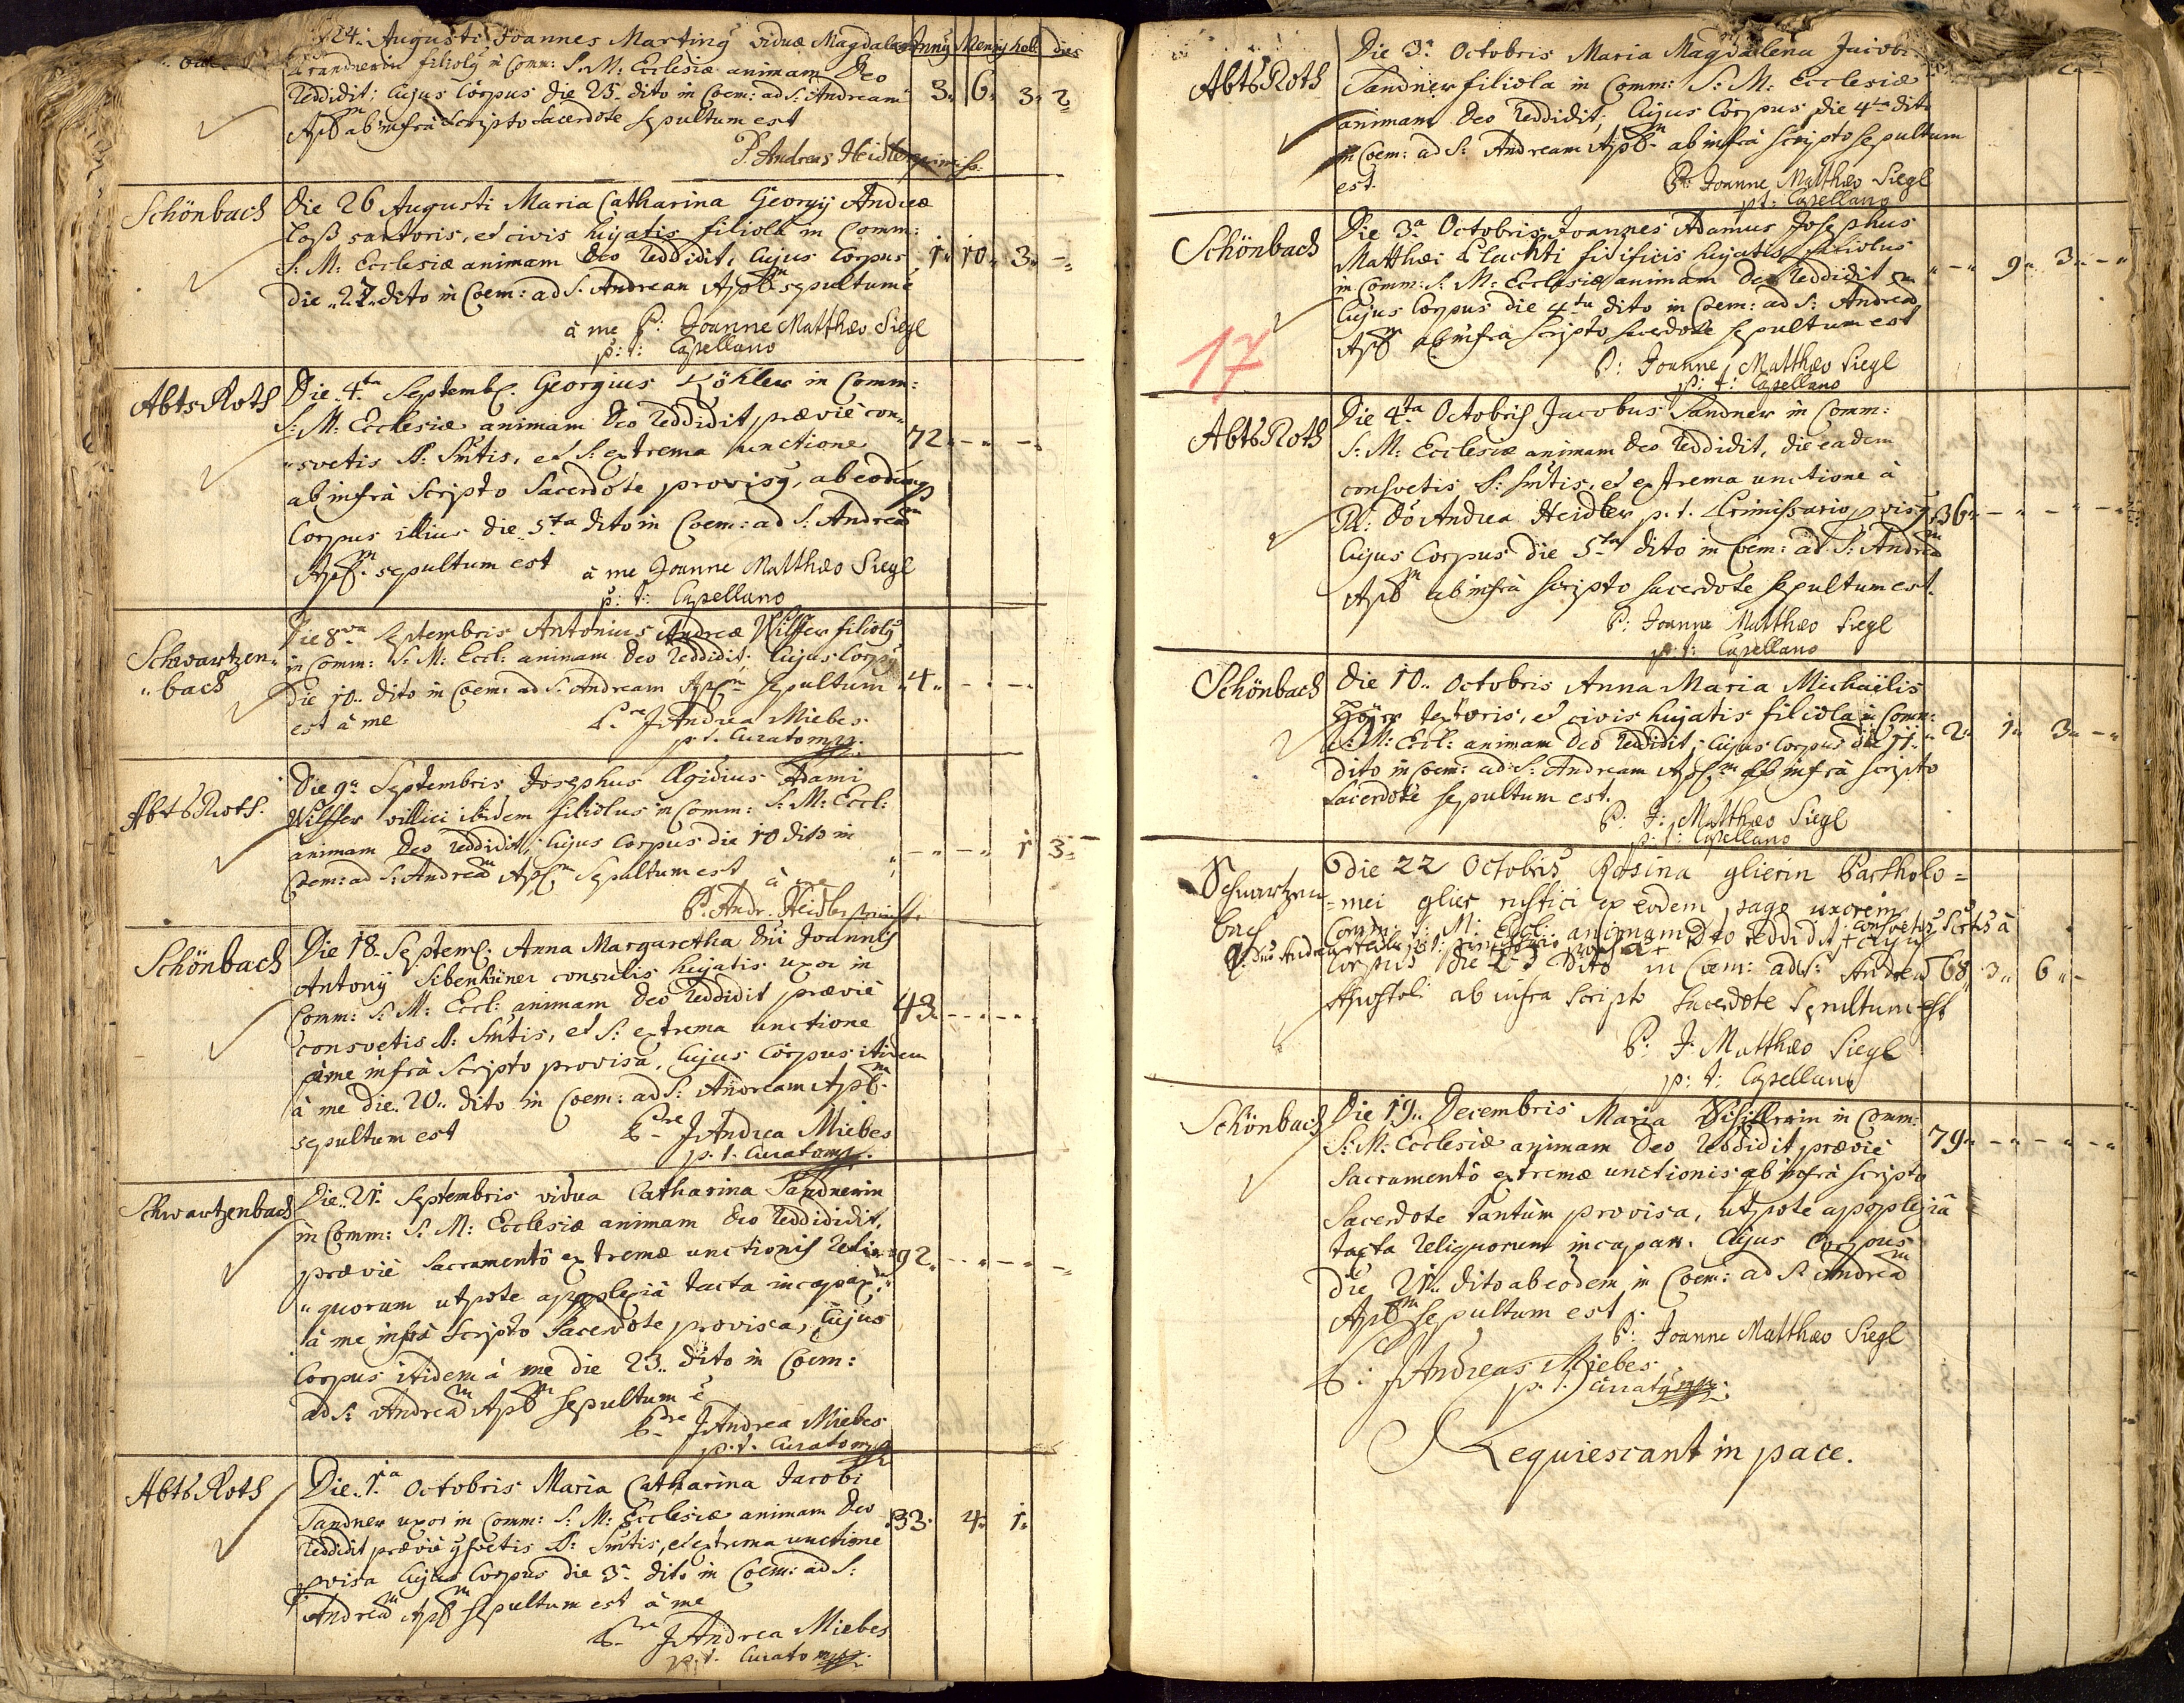 24. Augusti Joannes Marting viduæ Magdalen
Anny Mensy heb: dies
filioly in Comm: S: M: Ecclesiæ animam Deo
reddidit; Cujus Corpus die 25. dito in Coem: ad S: Andream
3. 6. 3. 2
Apl̃m ab infrà Scripto Sacerdote sepultum est
P. Andreas Heidler
Schönbach
Die 26 Augusti Maria Catharina Georgy Andreæ
Loß sartoris, et civis hujatis filiola in Comm:
S: M: Ecclesiæ animam Deo reddidit, Cujus Corpus
1. 10. 3. -
die 27. dito in Coem: ad S: Andream Apl̃m sepultum ẽ
à me P: Joanne Matthæo Siegl
p: t: Capellano
Abts Roth
Die 4ta Septemb. Georgius Köhler in Comm:
S: M: Ecclesiæ animam Deo reddidit, præviè con„
„svetis SS: Sm̃tis, et S: extrema unctione
72. - -
ab infrà Scripto Sacerdote provisy, ab eodemq
Corpus illius die 5ta dito in Coem: ad S: Andream
Apl̃m sepultum est à me Joanne Matthæo Siegl
p: t: Capellano
Schwartzen„
„bach
Die 8va Septembris Antonius Andreæ Wilfer filioly
in Comm: S: M: Eccl: animam Deo reddidit, Cujus Corpy
die 10. dito in Coem: ad S: Andream Apl̃m sepultum
4. - -
est à me P:re J Andrea Miebes
p. t. Curato mpp.
Abts Roth.
Die 9a Septembris Josephus Ægidius Adami
Wilfer villici ibidem filiolus in Comm: S: M: Eccl:
animam Deo reddidit, Cujus Corpus die 10 dito in
- - 1 3.
Coem: ad S: Andream Apl̃m Sepultum est à me
P. Andr. Heidler
Schönbach
Die 18. Septem. Anna Margaretha Dñi Joannis
Antony Sibenhüner consulis hujatis uxor in
Comm: S: M: Eccl: animam Deo reddidit præviè
43. - - -
consvetis SS: Sm̃tis, et S: extrema unctione
à me infrà Scripto provisa, Cujus Corpus itidem
à me die 20. dito in Coem: ad S: Andream Apl̃m
sepultum est P:re J Andrea Miebes
p. t. Curato mpp.
Schwartzenbach
Die 21. Septembris vidua Catharina Sandnerin
in Comm: S: M: Ecclesiæ animam Deo reddidit,
præviè Sacramentô extremæ unctionis reli„
92. - - -
„quorum utpote apoplexiâ tacta incapax
à me infrà Scripto Sacerdote provisa, Cujus
Corpus itidem à me die 23. dito in Coem:
ad S: Andream Apl̃m sepultum ẽ
P:re J Andrea Miebes
p. t. Curato mpp
Abts Roth
Die 1.a Octobris Maria Catharina Jacobi
Sandner uxor in Comm: S: M: Ecclesiæ animam Deo
33. 4. 1.
reddidit præviè ɔsvetis SS: Sm̃tis, et extrema unctione
pvisa Cujus Corpus die 3a dito in Coem: ad S:
Andream Apl̃m sepultum est à me
P:re J Andrea Miebes
p. t. Curato mpp.
Abts Roth
Die 3a Octobris Maria Magdalena Jacobi
Sandner filiola in Comm: S: M: Ecclesiæ
animam Deo reddidit, Cujus Corpus die 4ta dito
in Coem: ad S: Andream Apl̃m ab infrà scripto sepultum
est. P: Joanne Matthæo Siegl
p: t: Capellano
Schönbach
Die 3a Octobris Joannes Adamus Josephus
Matthæi hujatis filiolus
in Comm: S: M: Ecclesiæ animam Deo reddidit
- 9. 3. -
Cujus Corpus die 4ta dito in Coem: ad S: Andream
17
Apl̃m ab infrà Scripto Sacerdote sepultum est
P: Joanne Matthæo Siegl
p: t: Capellano
Abts Roth
Die 4ta Octobris Jacobus Sandner in Comm:
S: M: Ecclesiæ animam Deo reddidit, die eadem
consvetis S: Sm̃tis, et extrema unctione à
R: Dõ Andrea Heidler p. t. Primissario pvisy,
36. - - - -
Cujus Corpus die 5ta dito in Coem: ad S: Andream
Apl̃m ab infrà scripto sacerdote sepultum est.
P: Joanne Matthæo Siegl
p: t: Capellano
Schönbach
Die 10. Octobris Anna Maria Michaëlis
textoris, et civis hujatis filiola in Comm:
S: M: Eccl: animam Deo reddidit, Cujus Corpus die 11.
2. 1. 3. -
dito in Coem: ad S: Andream Apl̃m ab infrà scripto
Sacerdote sepultum est.
P: J: Matthæo Siegl
p: t: Capellano
Schwartzen
bach
die 22 Octobris Rosina glierin Bartholo=
=mei glier rustici ex eodem pago uxor in
Comm: S: M: Eccl: animam Deo reddidit + Cujus
consvetis Sctis à
Corpus die 23 Dito in Coem: ad S: Andream
68. 3. 6. -
Apostoli ab infra Scripto Sacerdote Sepultum est
P: J: Matthæo Siegl
p: t: Capellano
Schönbach
Die 19. Decembris Maria in Comm:
S: M: Ecclesiæ animam Deo reddidit præviè
79. - - - -
Sacramentô extremæ unctionis ab infrà scripto
Sacerdote tantùm provisa, utpote apoplexiâ
tacta reliquorum incapax. Cujus Corpus
die 21. dito ab eodem in Coem: ad S: Andream
Apl̃m sepultum est.
P: Joanne Matthæo Siegl
P: J Andreas Miebes
p. t. Curaty mpp.
Requiescant in pace.